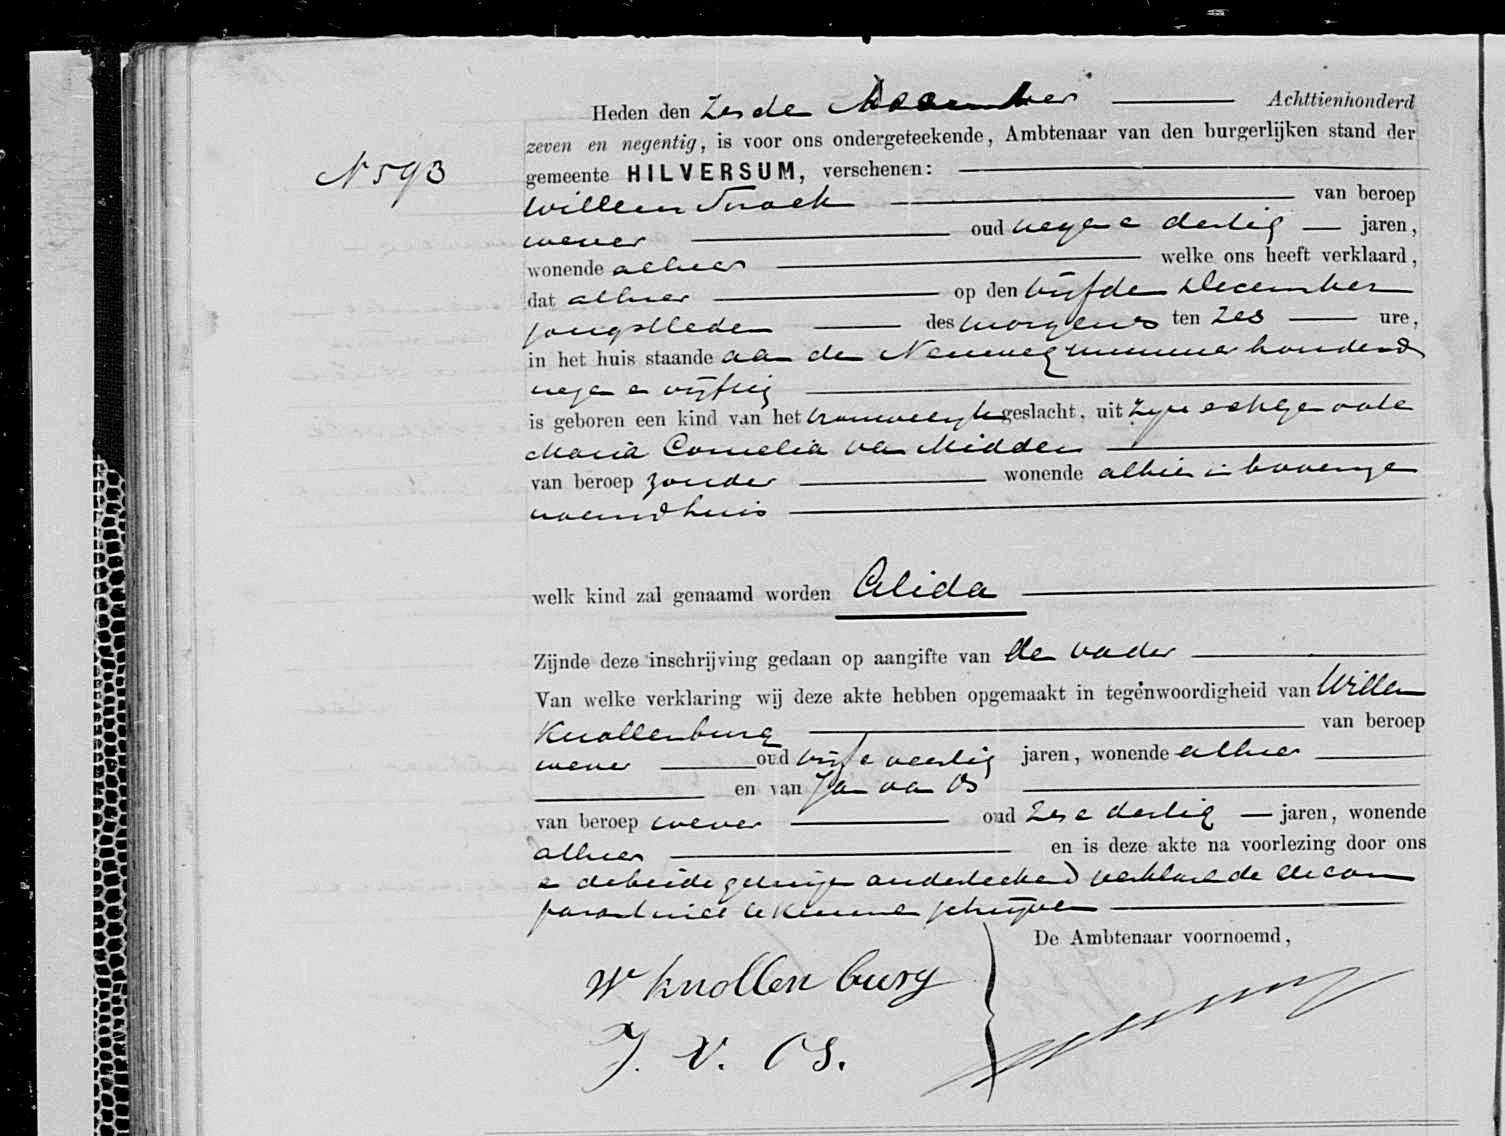 Heden den zesde December Achttienhonderd
zeven en negentig, is voor ons ondergeteekende, Ambtenaar van den burgerlijken stand der
No 593
gemeente HILVERSUM, verschenen:
Willem Snoek van beroep
wever oud negen e dertig jaren,
wonende alhier welke ons heeft verklaard,
dat alhier op den vijfden December
jongstleden des morgens ten zes ure,
in het huis staande aan den Neuweg nummer honderd
negen e vijftig
is geboren een kind van het vrouwelijk geslacht, uit zijne echtgenoote
Maria Cornelia van Midden
van beroep zonder wonende alhier in bovenge
noemd huis
welk kind zal genaamd worden Alida
Zijnde deze inschrijving gedaan op aangifte van den vader
Van welke verklaring wij deze akte hebben opgemaakt in tegenwoordigheid van Willem
Knollenburg van beroep
wever oud vijf e veertig jaren, wonende alhier
en van Jan van Os
van beroep wever oud zes e dertig jaren, wonende
alhier en is deze akte na voorlezing door ons
e de beide getuigen onderteekend verklarende de com
parant niet te kunnen schrijven
De Ambtenaar voornoemd,
W Knollenburg
J. v. Os.